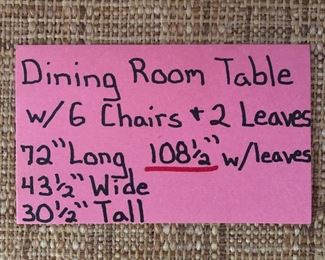 Dining Room Table
w/6 Chairs + 2 Leaves
72" Long 108½" w/leaves
43½" Wide
30½" Tall